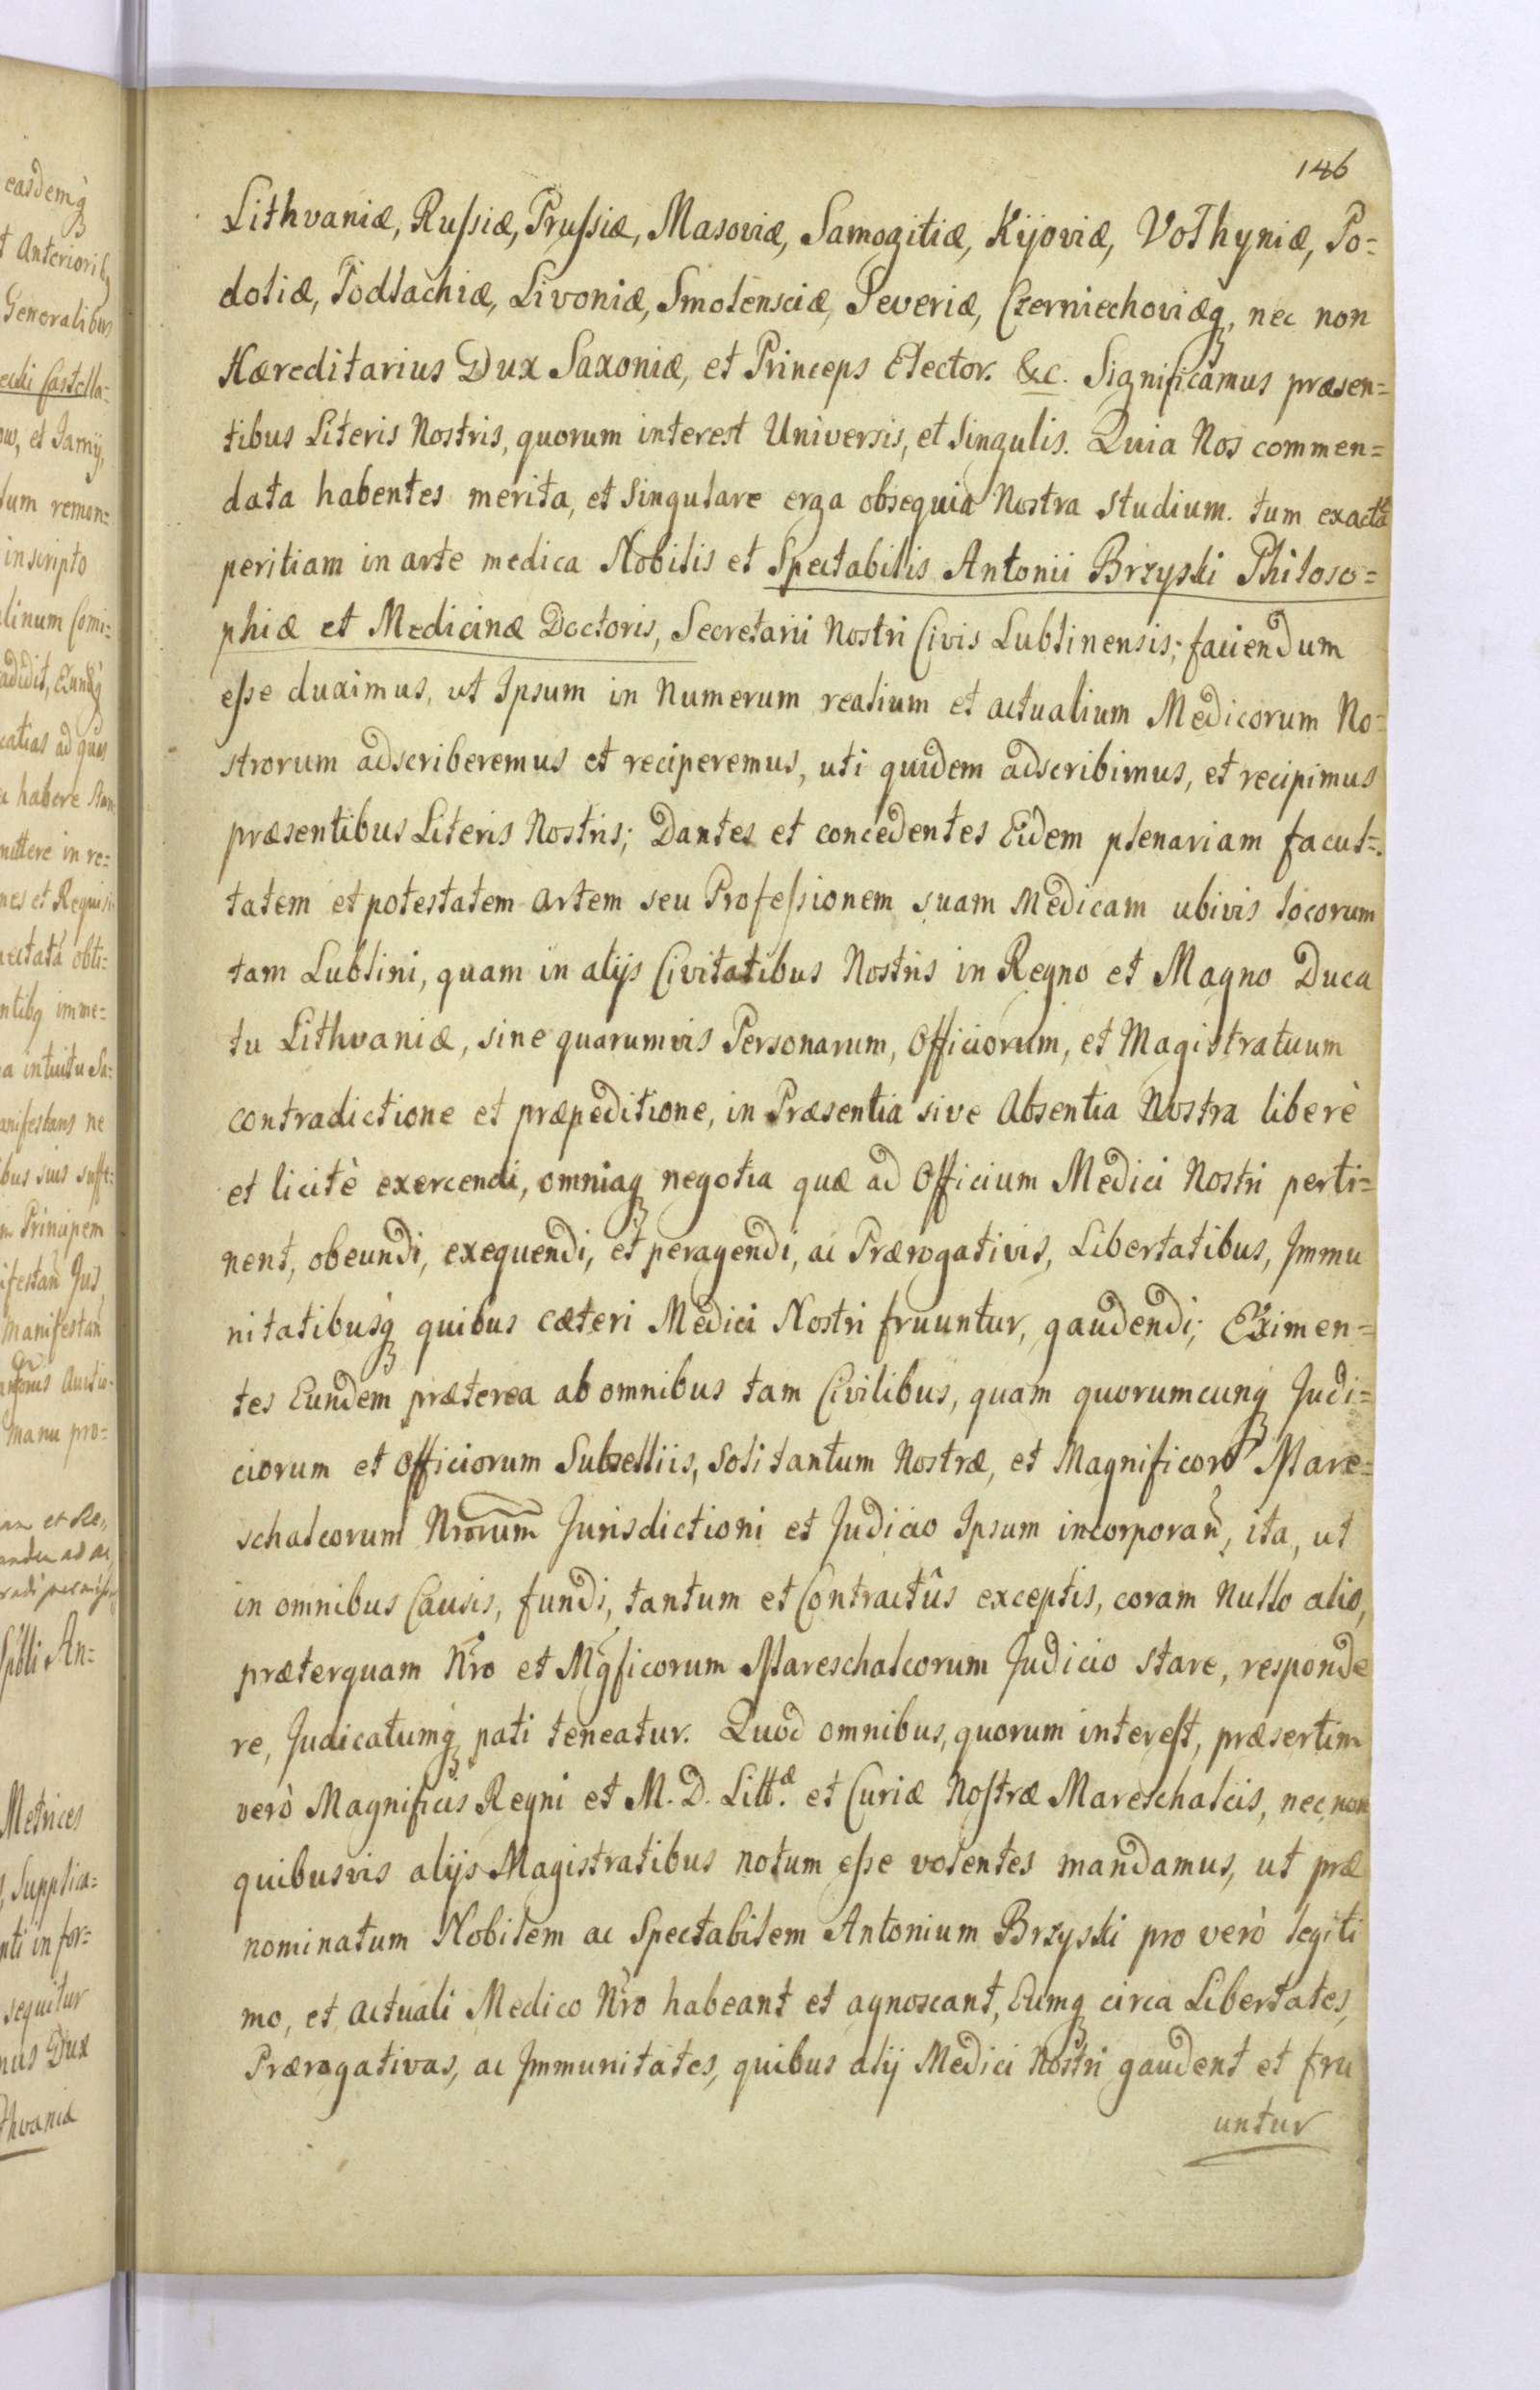 146
Lithvaniæ, Russiæ, Prussiæ, Masoviæ, Samogitiæ, Kijoviæ, Volhyniæ, Po=
doliæ, Podlachiæ, Livoniæ, Smolensciæ, Severiæ, Czerniechoviæq, nec non
Hæreditarius Dux Saxoniæ, et Princeps Elector. &c. Significamus præsen=
tibus Literis Nostris, quorum interest Universis, et Singulis. Quia Nos commen=
data habentes merita, et Singulare erga obsequia Nostra studium. tum exactã
peritiam in arte medica Nobilis et Spectabilis Antonii Brzyski Philoso=
phiæ et Medicinæ Doctoris, Secretarii Nostri Civis Lublinensis; faciendum
esse duximus, ut Ipsum in Numerum realium et actualium Medicorum No=
strorum adscriberemus et reciperemus, uti quidem adscribimus, et recipimus
præsentibus Literis Nostris; Dantes et concedentes Eidem plenariam facul=
tatem et potestatem artem seu Professionem suam Medicam ubivis locorum
tam Lublini, quam in alijs Civitatibus Nostris in Regno et Magno Duca
tu Lithvaniæ, sine quarumvis Personarum, Officiorum, et Magistratuum
contradictione et præpeditione, in Præsentia sive Absentia Nostra liberè
et licitè exercendi, omniaq negotia quæ ad Officium Medici Nostri perti=
nent, obeundi, exequendi, et peragendi, ac Prærogativis, Libertatibus, Immu
nitatibusq quibus cæteri Medici Nostri fruuntur, gaudendi; Eximen=
tes Eundem præterea ab omnibus tam Civilibus, quam quorumcunq Judi=
ciorum et Officiorum Subselliis, Soli tantum Nostræ, et Magnificorũ Mare=
schalcorum Nrorum Jurisdictioni et Judicio Ipsum incorporañ, ita, ut
in omnibus Causis, fundi, tantum et Contractûs exceptis, coram Nullo alio,
præterquam Nro et Mgficorum Mareschalcorum Judicio stare, responde
re, Judicatumq pati teneatur. Quod omnibus, quorum interest, præsertim
verò Magnificis Regni et M. D. Litt.æ et Curiæ Nostræ Mareschalcis, nec non
quibusvis alijs Magistratibus notum esse volentes mandamus, ut præ
nominatum Nobilem ac Spectabilem Antonium Brzyski pro verò legiti
mo, et actuali Medico Nro habeant et agnoscant, Eumq circa Libertates,
Prærogativas, ac Immunitates, quibus alij Medici Nostri gaudent et fru
untur